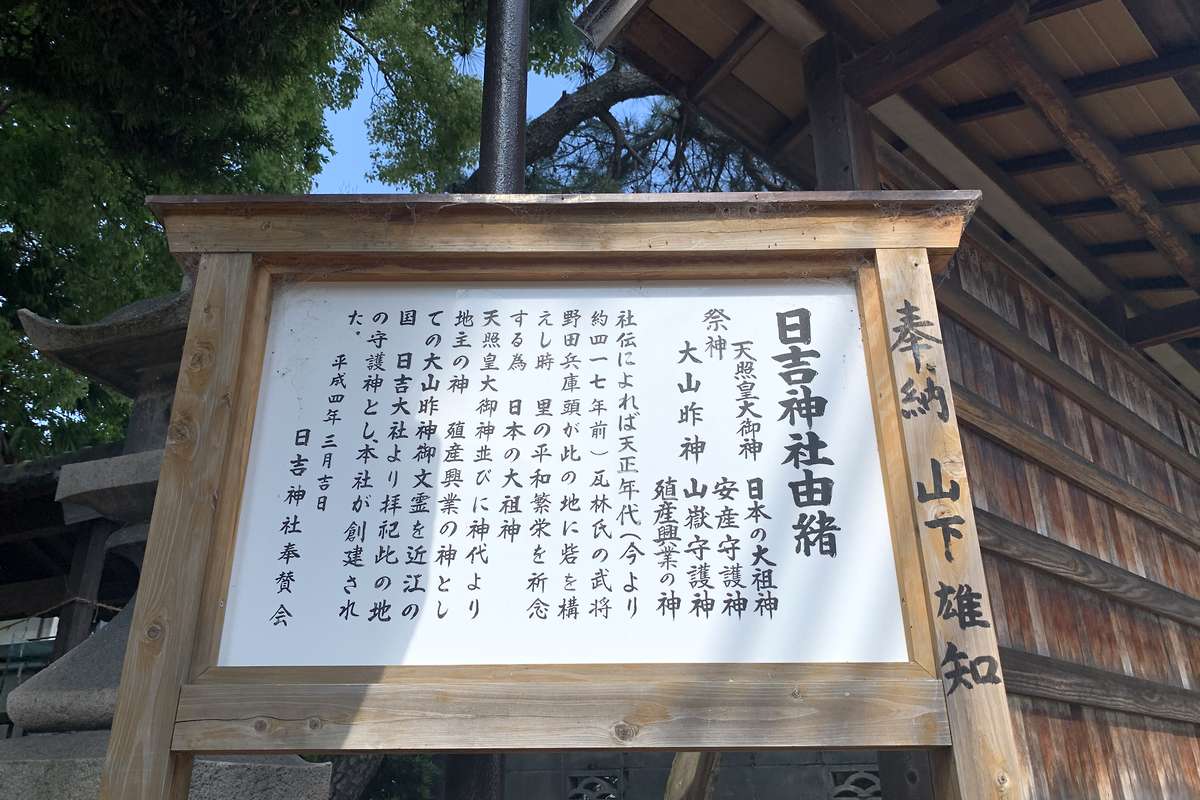 奉納 山下雄知
日吉神社由緒
祭神
天照皇大御神 日本の大祖神
安産守護神
大山昨神 山嶽守護神
殖産興業の神
社伝によれば天正年代(今より
約四一七年前)瓦林氏の武将
野田兵庫頭が此の地に砦を構
えし時 里の平和繁栄を祈念
する為 日本の大祖神
天照皇大御神並びに神代より
地主の神 殖産興業の神とし
ての大山昨神御文霊を近江の
国 日吉大社より拝祀此の地
の守護神とし、本社が創建され
た。
平成四年 三月吉日
日吉神社奉賛会